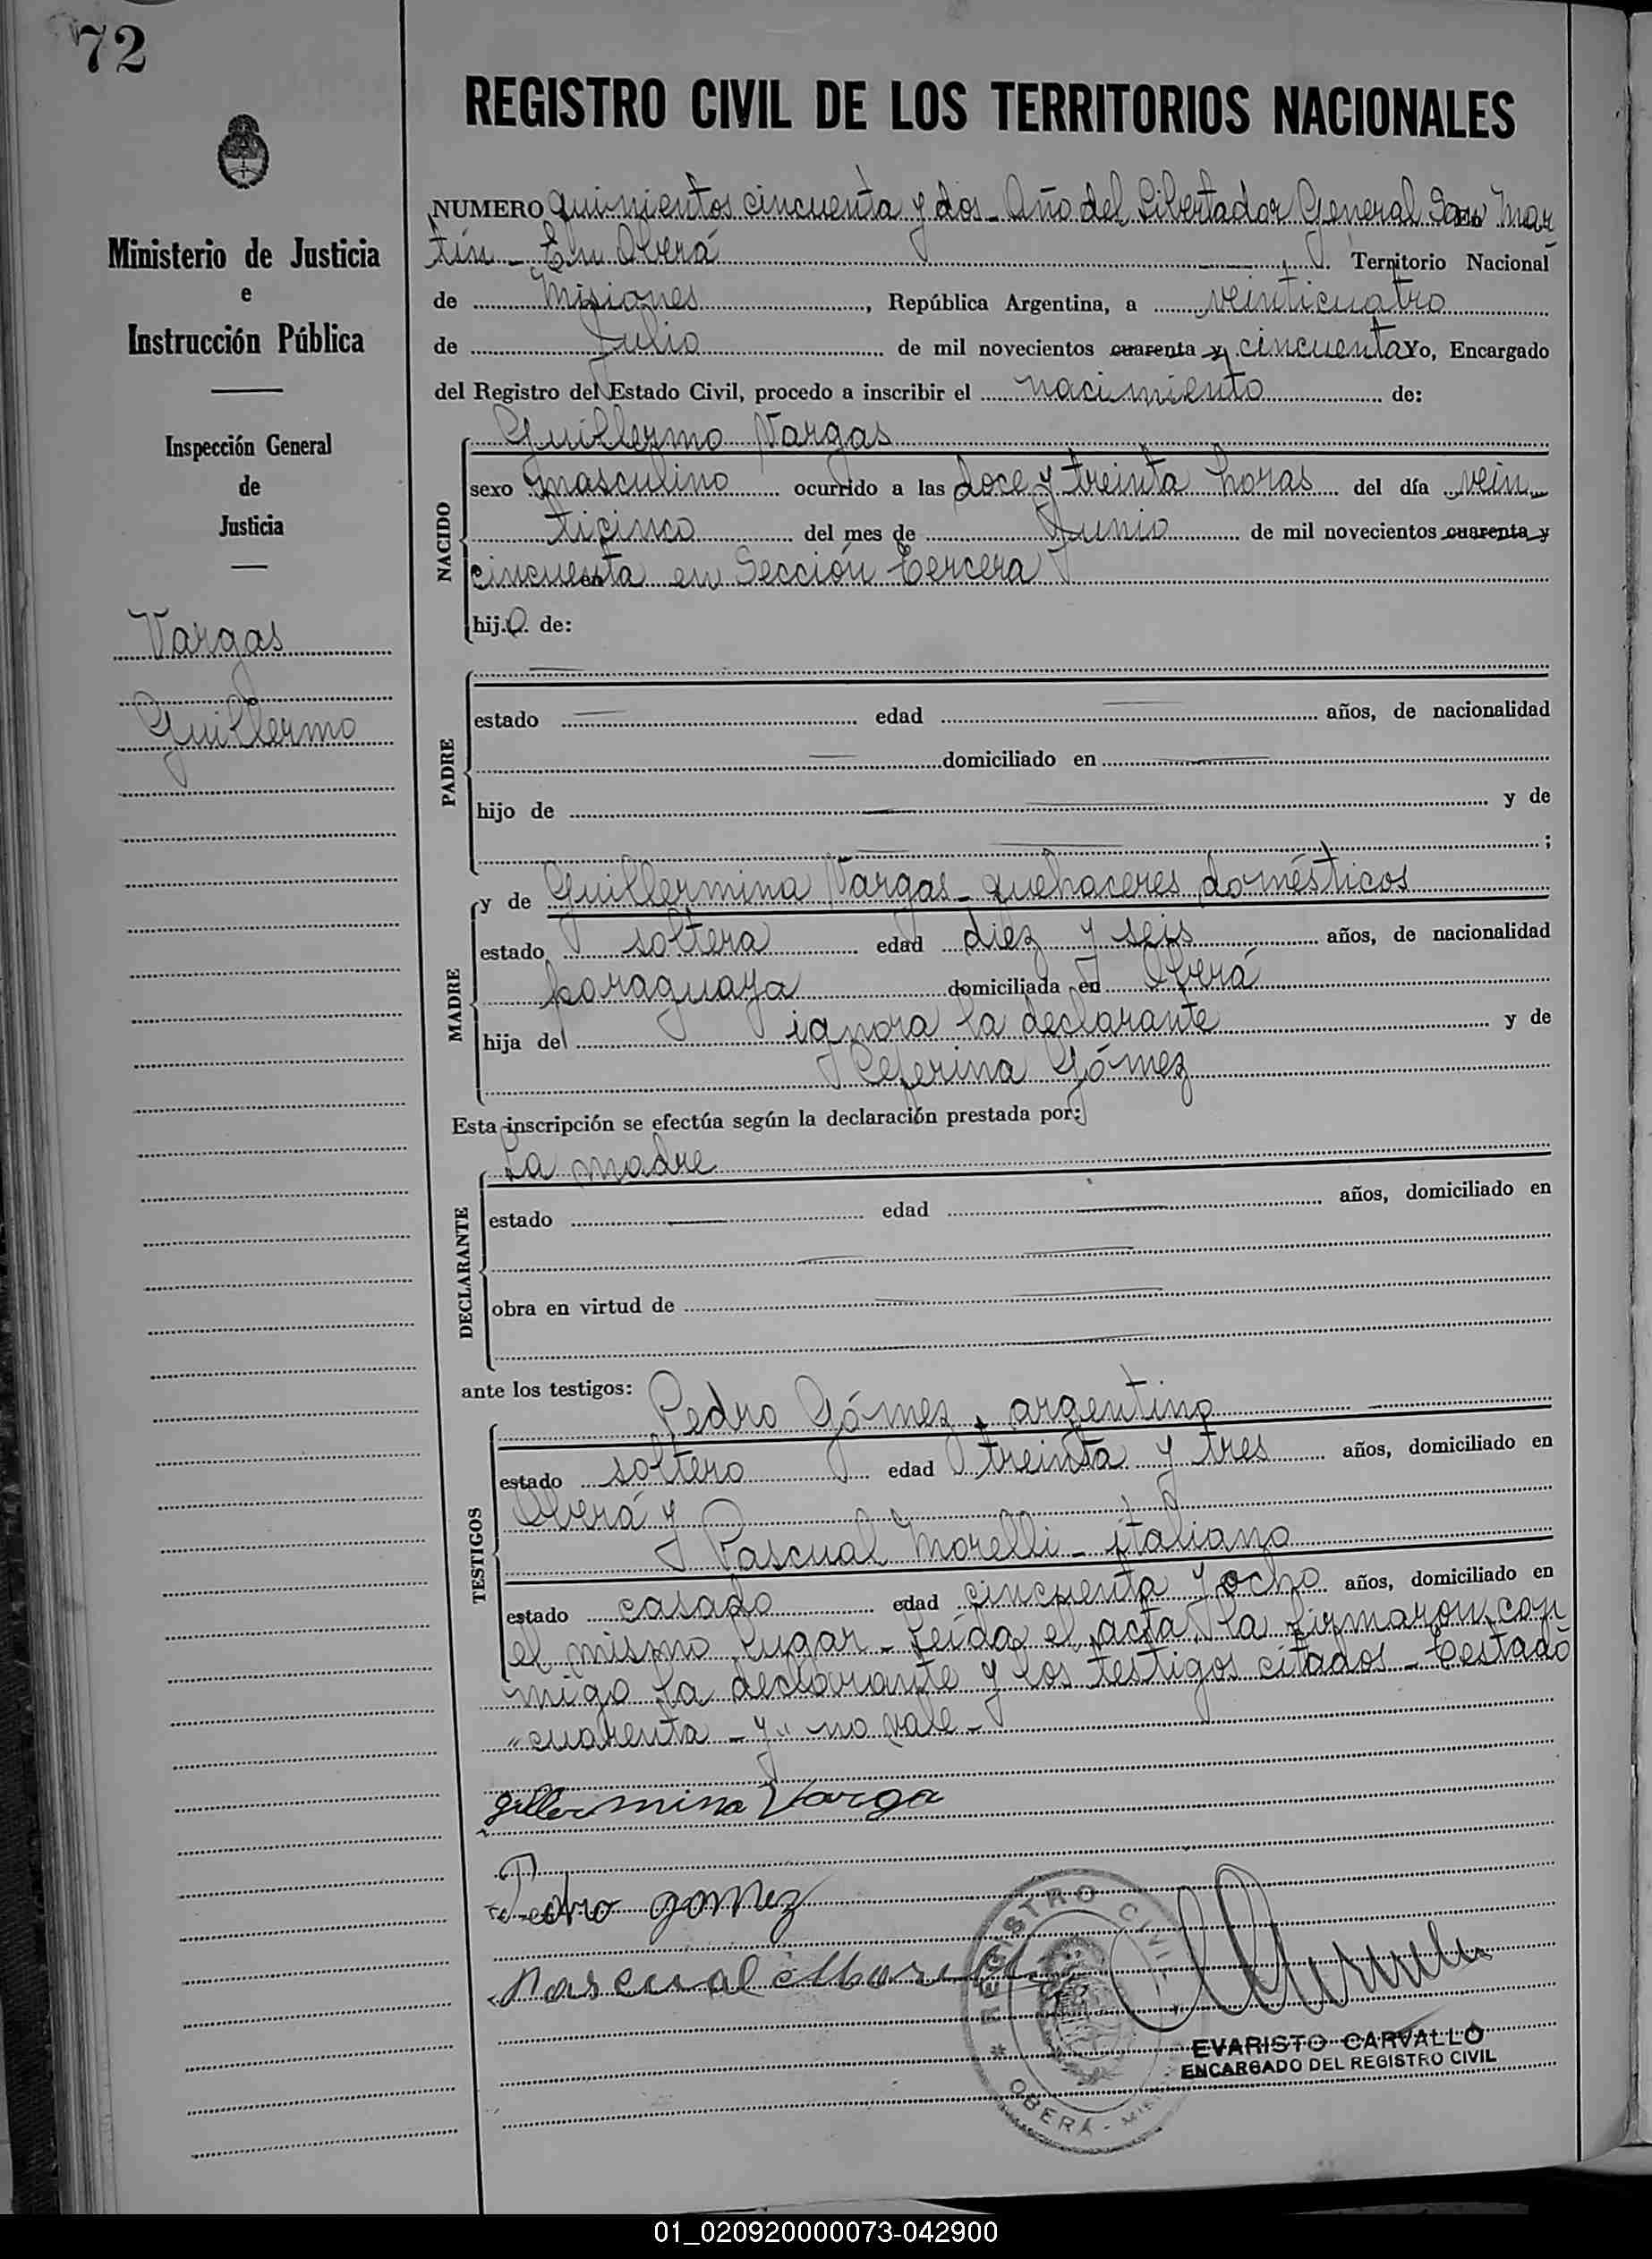 72
REGISTRO CIVIL DE LOS TERRITORIOS NACIONALES
Ministerio de Justicia
e
Instrucción Pública
Inspección General
de
Justicia
Vargas
Guillermo
NUMERO quinientos cincuenta y dos - Año del Libertador General San Mar
tín - En Oberá Territorio Nacional
de Misiones, República Argentina, a veinticuatro
de Julio de mil novecientos cuarenta y cincuenta Yo, Encargado
del Registro del Estado Civil, procedo a inscribir el nacimiento de:
NACIDO
Guillermo Vargas
sexo masculino ocurrido a las doce y treinta horas del día vein
ticinco del mes de Junio de mil novecientos cuarenta y
cincuenta en Sección Tercera
hijo de:
PADRE
estado edad años, de nacionalidad
domiciliado en
hijo de y de
;
MADRE
y de Guillermina Vargas - quehaceres domésticos
estado soltera edad diez y seis años, de nacionalidad
paraguaya domiciliada en Oberá
hija de ignora la declarante y de
Ceferina Gómez
Esta inscripción se efectúa según la declaración prestada por:
DECLARANTE
La madre
estado edad años, domiciliado en
obra en virtud de
ante los testigos:
TESTIGOS
Pedro Gómez - argentino
estado soltero edad treinta y tres años, domiciliado en
Oberá y
Pascual Morelli - italiano
estado casado edad cincuenta y ocho años, domiciliado en
el mismo lugar - Leída el acta, la firmaron con
migo la declarante y los testigos citados - Testado
"cuarenta - y" no vale -
gillermina Varga
Pedro gomez
Pascual Morelli
REGISTRO CIVIL
OBERÁ -
EVARISTO CARVALLO
ENCARGADO DEL REGISTRO CIVIL
01_020920000073-042900